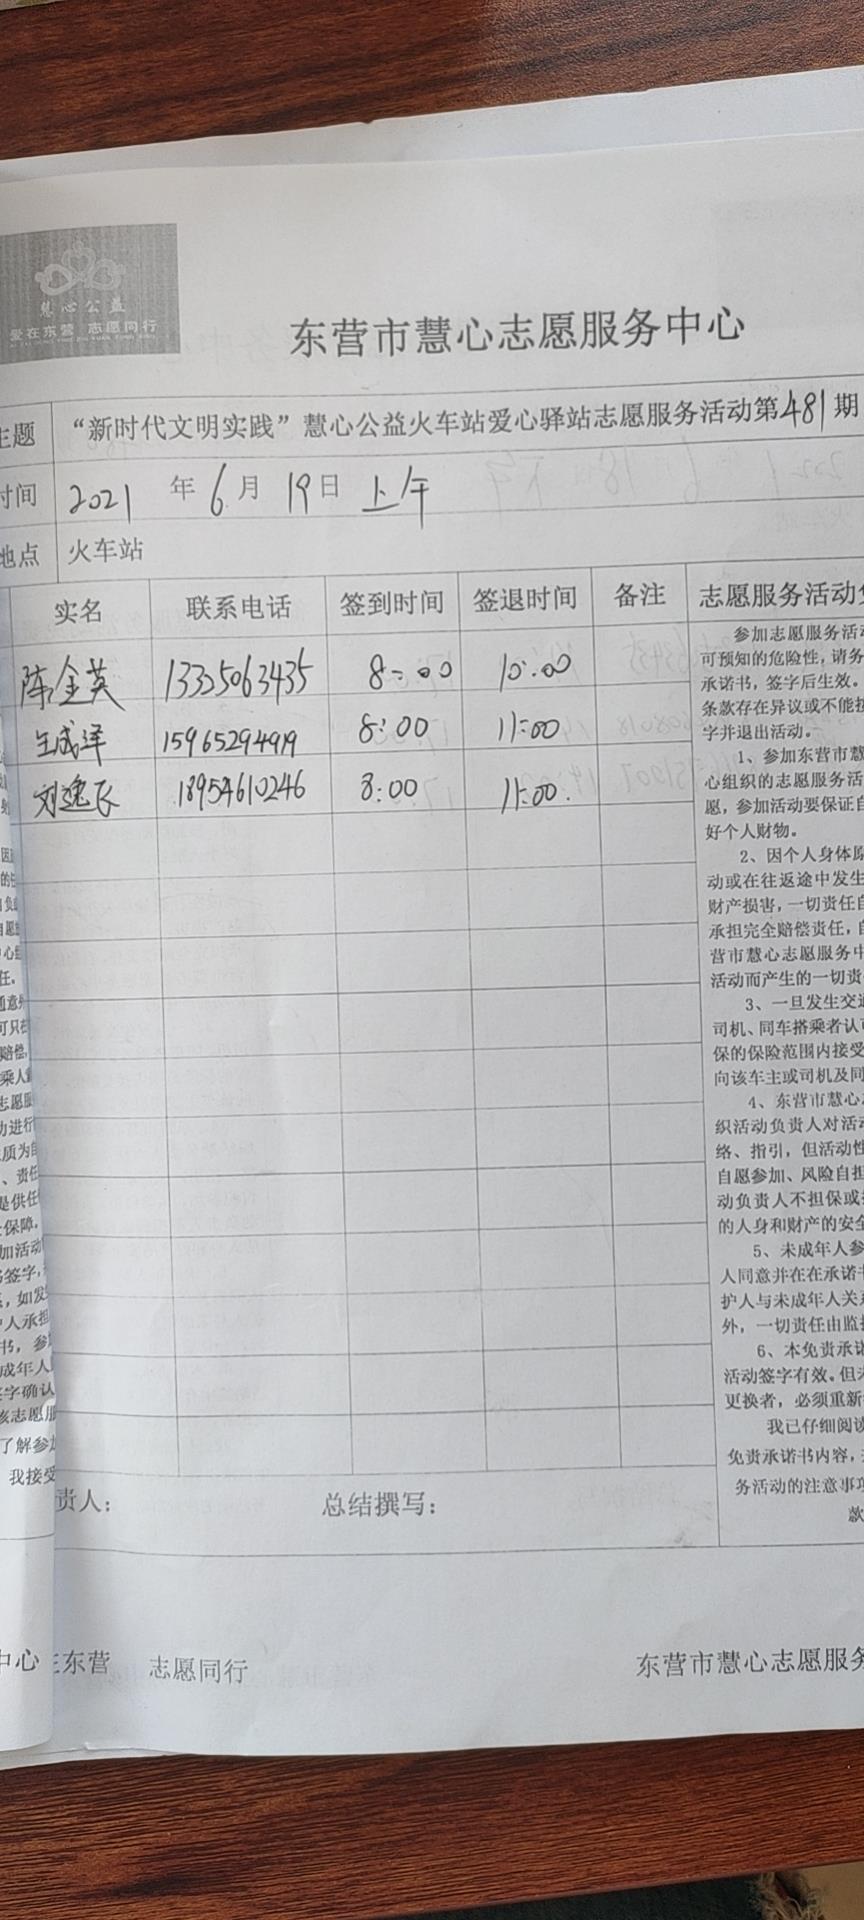 慧心公益
爱在东营 志愿同行
东营市慧心志愿服务中心
主题 “新时代文明实践”慧心公益火车站爱心驿站志愿服务活动第481期
时间 2021 年 6 月 19 日 上午
地点 火车站
实名 联系电话 签到时间 签退时间 备注 志愿服务活动
陈金英 13325063435 8:00 10:00
15965294919 8:00 11:00
刘逸辰 18954610246 8:00 11:00
参加志愿服务活动
可预知的危险性，请务
承诺书，签字后生效。
条款存在异议或不能
字并退出活动。
1、参加东营市慧
心组织的志愿服务活
愿，参加活动要保证自
好个人财物。
2、因个人身体原
动或在往返途中发生
财产损害，一切责任自
承担完全赔偿责任，自
营市慧心志愿服务中
活动而产生的一切责
3、一旦发生交通
司机、同车搭乘者认可
保的保险范围内接受
向该车主或司机及同
4、东营市慧心志
织活动负责人对活动
络、指引，但活动性
自愿参加、风险自担
动负责人不担保或
的人身和财产的安全
5、未成年人参
人同意并在在承诺书
护人与未成年人关系
外，一切责任由监护
6、本免责承诺
活动签字有效。但未
更换者，必须重新
我已仔细阅读
免责承诺书内容，
务活动的注意事项
款
责人： 总结撰写：
中心 东营 志愿同行 东营市慧心志愿服务